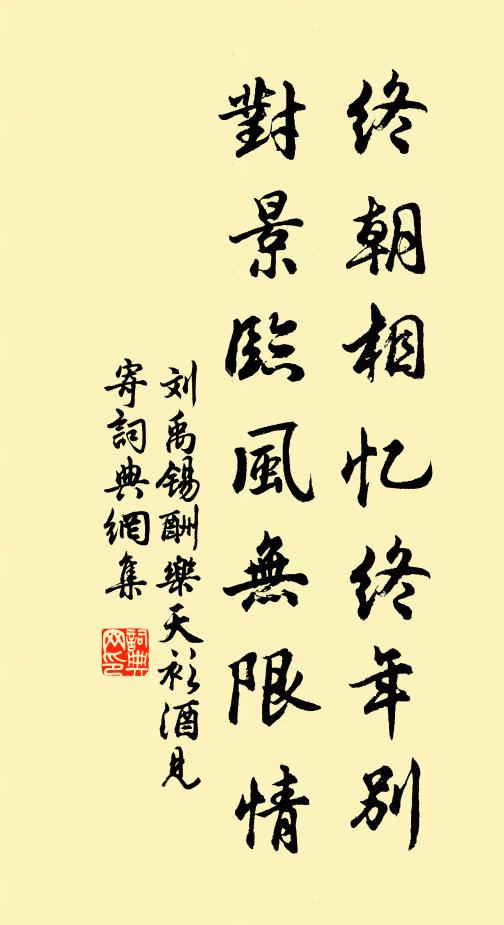 终朝相忆终年别
對景臨風無限情
刘禹锡酬樂天衫酒見
寄詞典網集
詞典网印